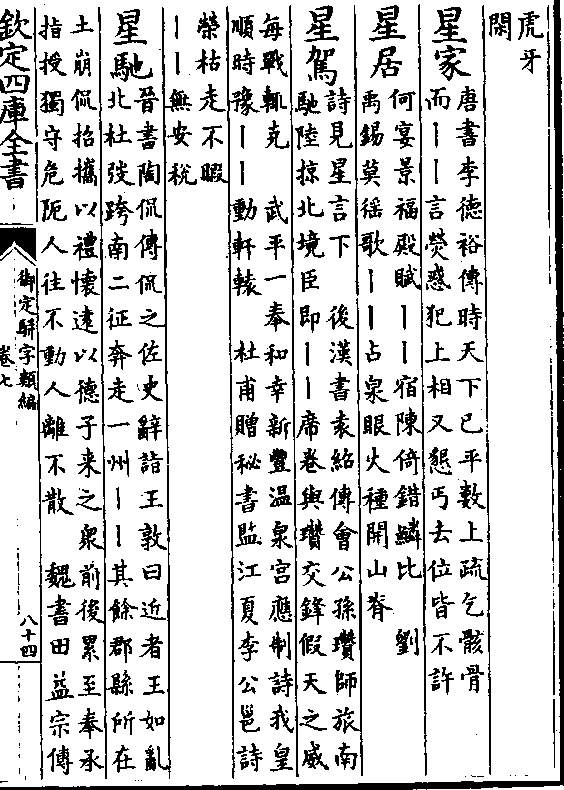 虎牙
閑
星家 唐書李德裕傳時天下已平數上疏乞骸骨
而丨丨言熒惑犯上相又懇丐去位皆不許
星居 何宴景福殿賦丨丨宿陳倚錯鱗比 劉
禹錫莫徭歌丨丨占泉眼火種開山脊
星駕 詩見星言下 後漢書袁紹傳會公孫瓚師旅南
馳陸掠北境臣即丨丨席卷與瓚交鋒假天之威
每戰輒克 武平一奉和幸新豐温泉宮應制詩我皇
順時豫丨丨動軒轅 杜甫贈秘書監江夏李公邕詩
榮枯走不暇
丨丨無安税
星馳 晉書陶侃傳侃之佐史辭詣王敦曰近者王如亂
北杜弢跨南二征奔走一州丨丨其餘郡縣所在
土崩侃招攜以禮懷遠以德子来之衆前後累至奉承
指授獨守危阨人往不動人離不散 魏書田益宗傳
欽定四庫全書
御定駢字類編
卷七
八十四